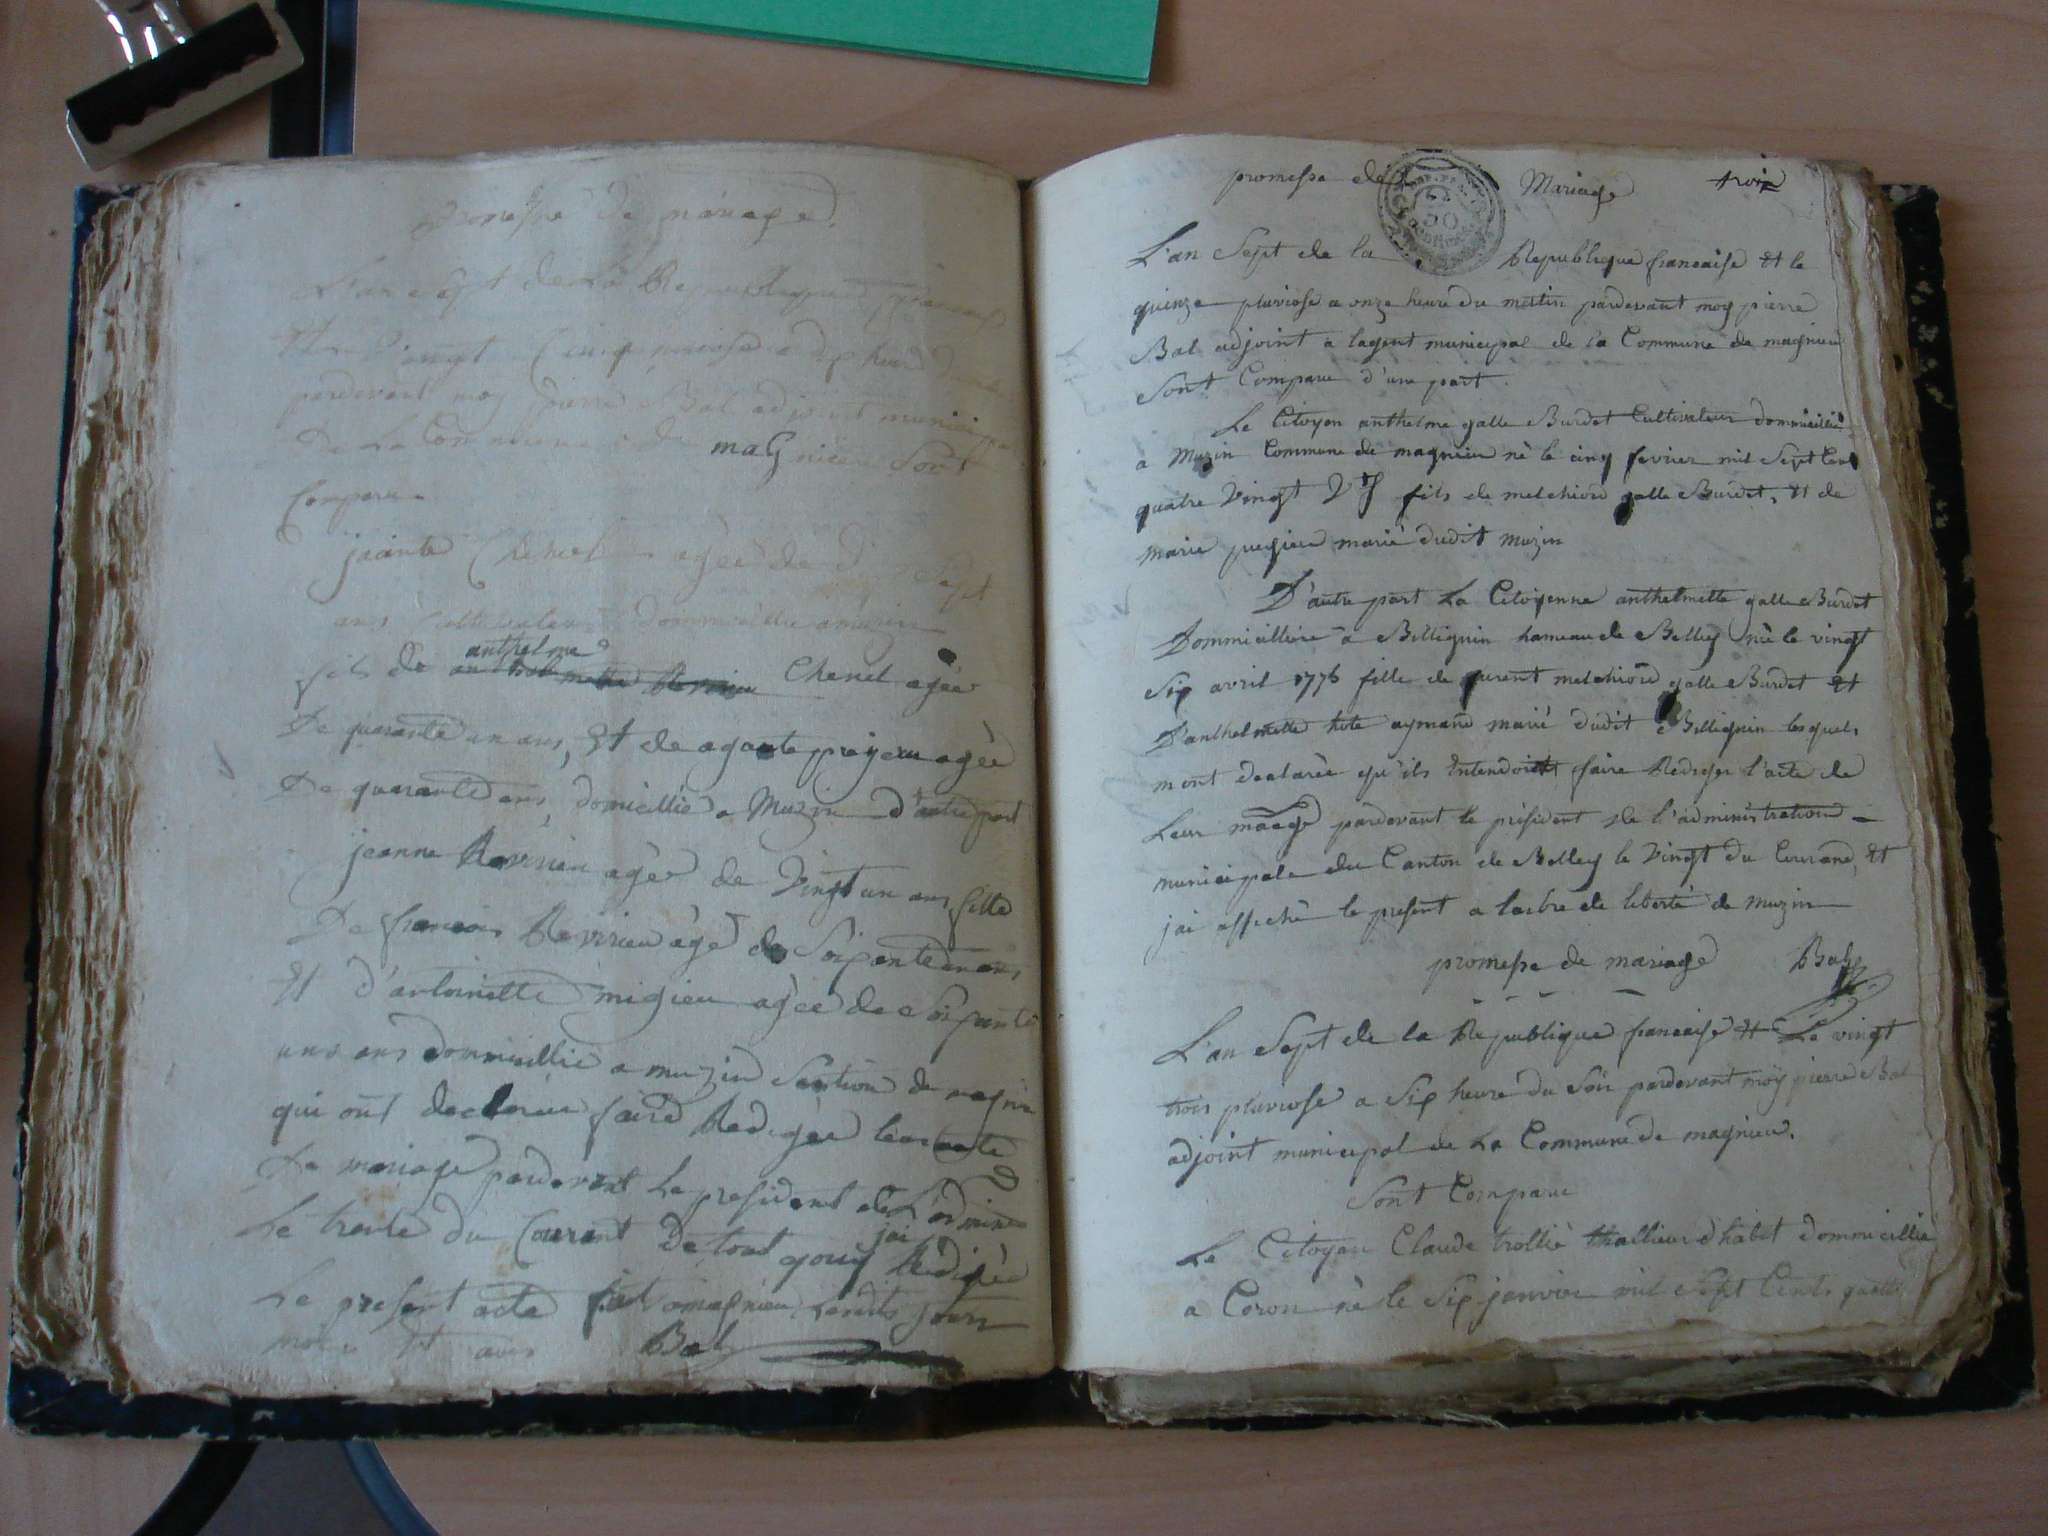 promesse de mariage
L'an sept de La Republique
Et vingt Cinq heure
pardevant moy pierre Bal adjoint municipal
De La Commune de magnieu Sont
Comparu
jacinte Chenel agée de Sept
ans Cultivateur dommicillié a muzin
anthelme
fils de Chenel agée
De quarante un ans, Et de agée
De quarante ans, domicillié a Muzin d'autre part
jeanne Revirieu agée de Vingt un ans fille
De francois Revirieu agé de Soixante un ans
Et d'antoinette migieu agée de Soixante
uns ans dommicillié a muzin Section de magnieu
qui ont declarée faire Redigée leur acte
De mariage pardevant Le president de L'admin
Le trente du Courant De tout quoy jai Redigée
Le present acte fait a magnieu Lesdits jours
mois Et ans Bal
promesse de Mariage trois
L'an Sept de la Republique francaise Et le
quinze pluviose a onze heure du mattin pardevant moy pierre
Bal adjoint a lagent municipal de la Commune de magnieu
Sont Comparu d'une part
Le Citoyen anthelme galle Burdet Cultivateur dommicillié
a Muzin Commune de magnieu né le cinq fevrier mil Sept Cent
quatre Vingt fils de melchiord galle Burdet, Et de
marie marié dudit muzin
D'autre part La Citoyenne anthelmette galle Burdet
Dommicilliée a Billignin hameau de Belley née le vingt
Six avril 1775 fille de furent melchiord galle Burdet Et
D'anthelmette hote aymand marié dudit Billignin lesquels
mont declarée qu'ils Entendoient faire Rediger l'acte de
Leur pardevant le président de l'administration
municipale du Canton de Belley le Vingt du Courand, Et
jai affiché le present a larbre de liberté de muzin
promesse de mariage Bal
L'an Sept de la Republique francaise Et Le vingt
trois pluviose a Six heure du Soir pardevant moy pierre Bal
adjoint municipal de La Commune de magnieu.
Sont Comparu
Le Citoyen Claude trollié thallieur d'habit dommicillié
a Coron né le Six janvier mil Sept Cents quatre